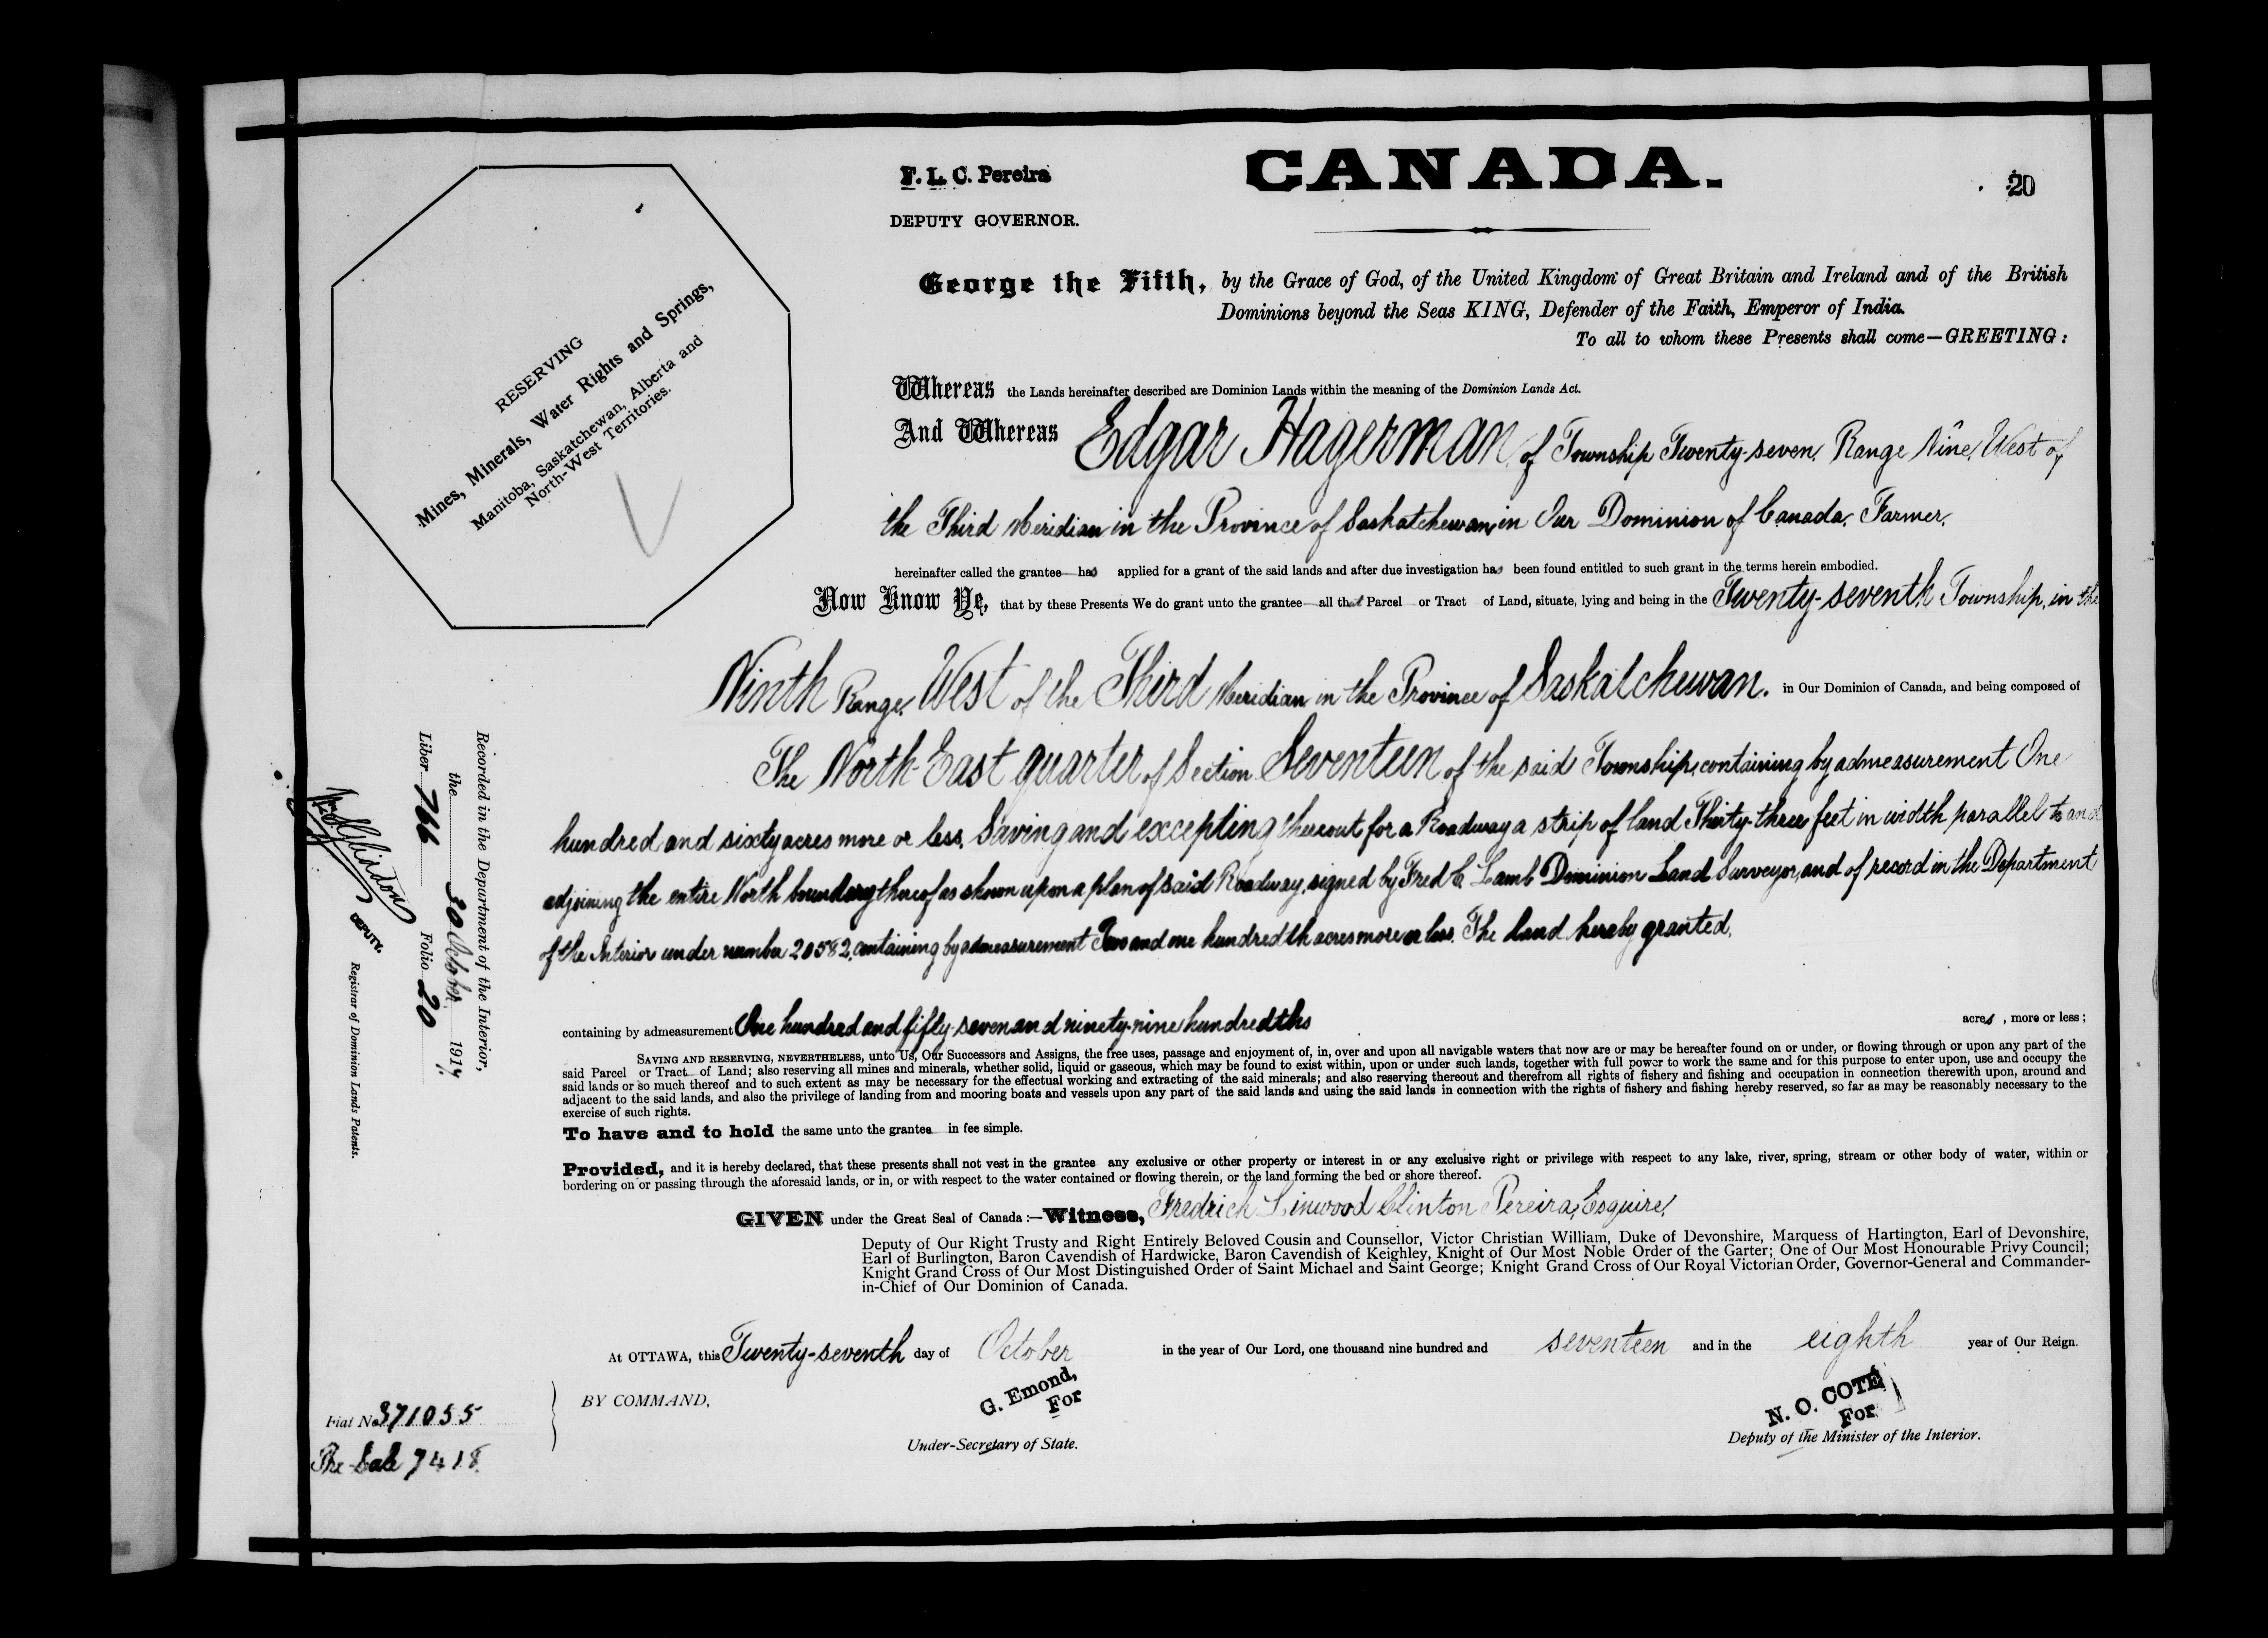 CANADA.
20
F. L. C. Pereira
DEPUTY GOVERNOR.
RESERVING
Mines, Minerals, Water Rights and Springs,
Manitoba, Saskatchewan, Alberta and
North-West Territories.
George the Fifth, by the Grace of God, of the United Kingdom of Great Britain and Ireland and of the British
Dominions beyond the Seas KING, Defender of the Faith, Emperor of India.
To all to whom these Presents shall come—GREETING:
Whereas the Lands hereinafter described are Dominion Lands within the meaning of the Dominion Lands Act.
And Whereas Edgar Hagerman of Township Twenty-seven, Range Nine, West of
the Third Meridian in the Province of Saskatchewan, in Our Dominion of Canada, Farmer,
hereinafter called the grantee has applied for a grant of the said lands and after due investigation has been found entitled to such grant in the terms herein embodied.
Now Know Ye, that by these Presents We do grant unto the grantee all that Parcel or Tract of Land, situate, lying and being in the Twenty-seventh Township, in the
Ninth Range, West of the Third Meridian in the Province of Saskatchewan. in Our Dominion of Canada, and being composed of
The North-East quarter of Section Seventeen of the said Township, containing by admeasurement One
hundred and sixty acres more or less, Saving and excepting thereout for a Roadway a strip of land Thirty-three feet in width parallel to and
adjoining the entire North boundary thereof as shown upon a plan of said Roadway, signed by Fred C. Lamb Dominion Land Surveyor, and of record in the Department
of the Interior under number 20582, containing by admeasurement Two and one hundredth acres more or less. The land hereby granted,
containing by admeasurement One hundred and fifty-seven and ninety-nine hundredths acres, more or less;
SAVING AND RESERVING, NEVERTHELESS, unto Us, Our Successors and Assigns, the free uses, passage and enjoyment of, in, over and upon all navigable waters that now are or may be hereafter found on or under, or flowing through or upon any part of the
said Parcel or Tract of Land; also reserving all mines and minerals, whether solid, liquid or gaseous, which may be found to exist within, upon or under such lands, together with full power to work the same and for this purpose to enter upon, use and occupy the
said lands or so much thereof and to such extent as may be necessary for the effectual working and extracting of the said minerals; and also reserving thereout and therefrom all rights of fishery and fishing and occupation in connection therewith upon, around and
adjacent to the said lands, and also the privilege of landing from and mooring boats and vessels upon any part of the said lands and using the said lands in connection with the rights of fishery and fishing hereby reserved, so far as may be reasonably necessary to the
exercise of such rights.
To have and to hold the same unto the grantee in fee simple.
Provided, and it is hereby declared, that these presents shall not vest in the grantee any exclusive or other property or interest in or any exclusive right or privilege with respect to any lake, river, spring, stream or other body of water, within or
bordering on or passing through the aforesaid lands, or in, or with respect to the water contained or flowing therein, or the land forming the bed or shore thereof.
GIVEN under the Great Seal of Canada:—Witness, Fredrich Linwood Clinton Pereira, Esquire,
Deputy of Our Right Trusty and Right Entirely Beloved Cousin and Counsellor, Victor Christian William, Duke of Devonshire, Marquess of Hartington, Earl of Devonshire,
Earl of Burlington, Baron Cavendish of Hardwicke, Baron Cavendish of Keighley, Knight of Our Most Noble Order of the Garter; One of Our Most Honourable Privy Council;
Knight Grand Cross of Our Most Distinguished Order of Saint Michael and Saint George; Knight Grand Cross of Our Royal Victorian Order, Governor-General and Commander-
in-Chief of Our Dominion of Canada.
At OTTAWA, this Twenty-seventh day of October in the year of Our Lord, one thousand nine hundred and seventeen and in the eighth year of Our Reign.
BY COMMAND,
G. Emond,
For
Under-Secretary of State.
N. O. COTÉ
For
Deputy of the Minister of the Interior.
Recorded in the Department of the Interior,
the 30 October 1917
Liber 766 Folio 20
DEPUTY.
Registrar of Dominion Lands Patents.
Fiat No 371055
Pre Sale 7418